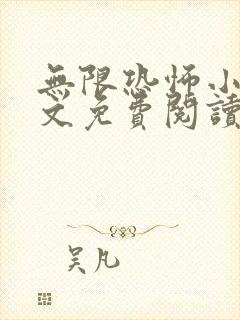 無限恐怖小
文免費閱讀
吴凡